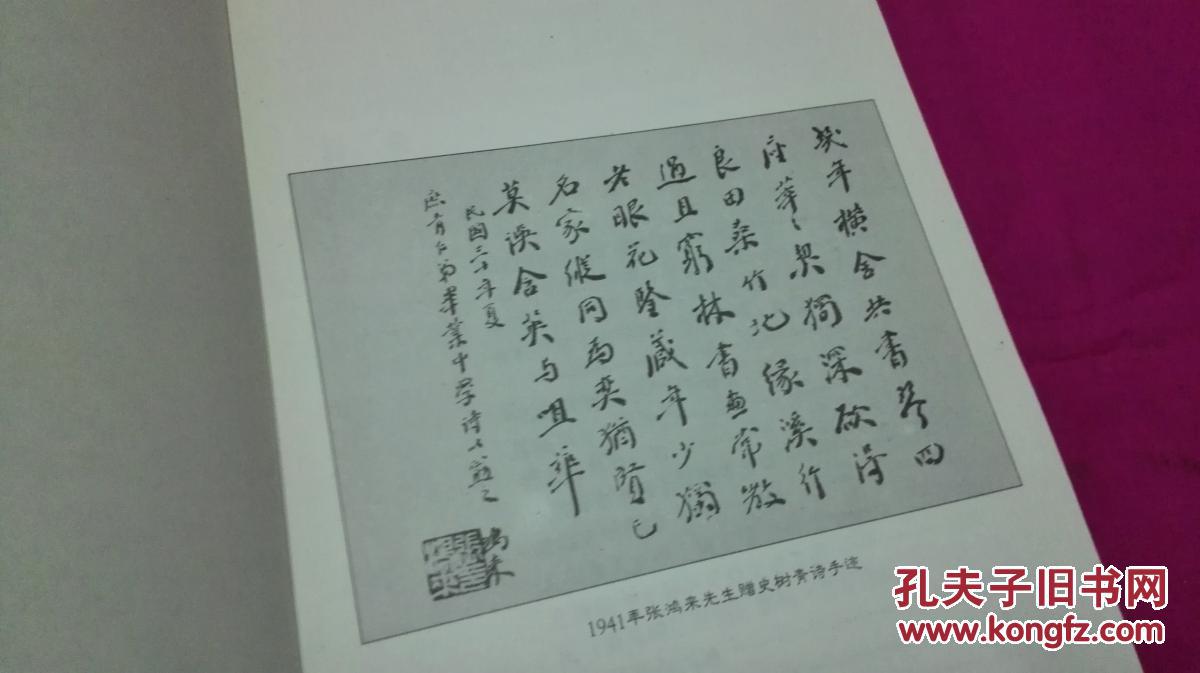 幾年橫舍共書琴四
座 獨深 得
良田桑竹地緣溪行
過且窮林書畫常教
老眼花鑒藏年少獨
名家縱同為奕猶賢已
莫誤含英与咀華
民國三十年夏
庶青仁弟畢業中學詩以 之
鴻來
1941年张鸿来先生赠史树青诗手迹
孔夫子旧书网
www.kongfz.com